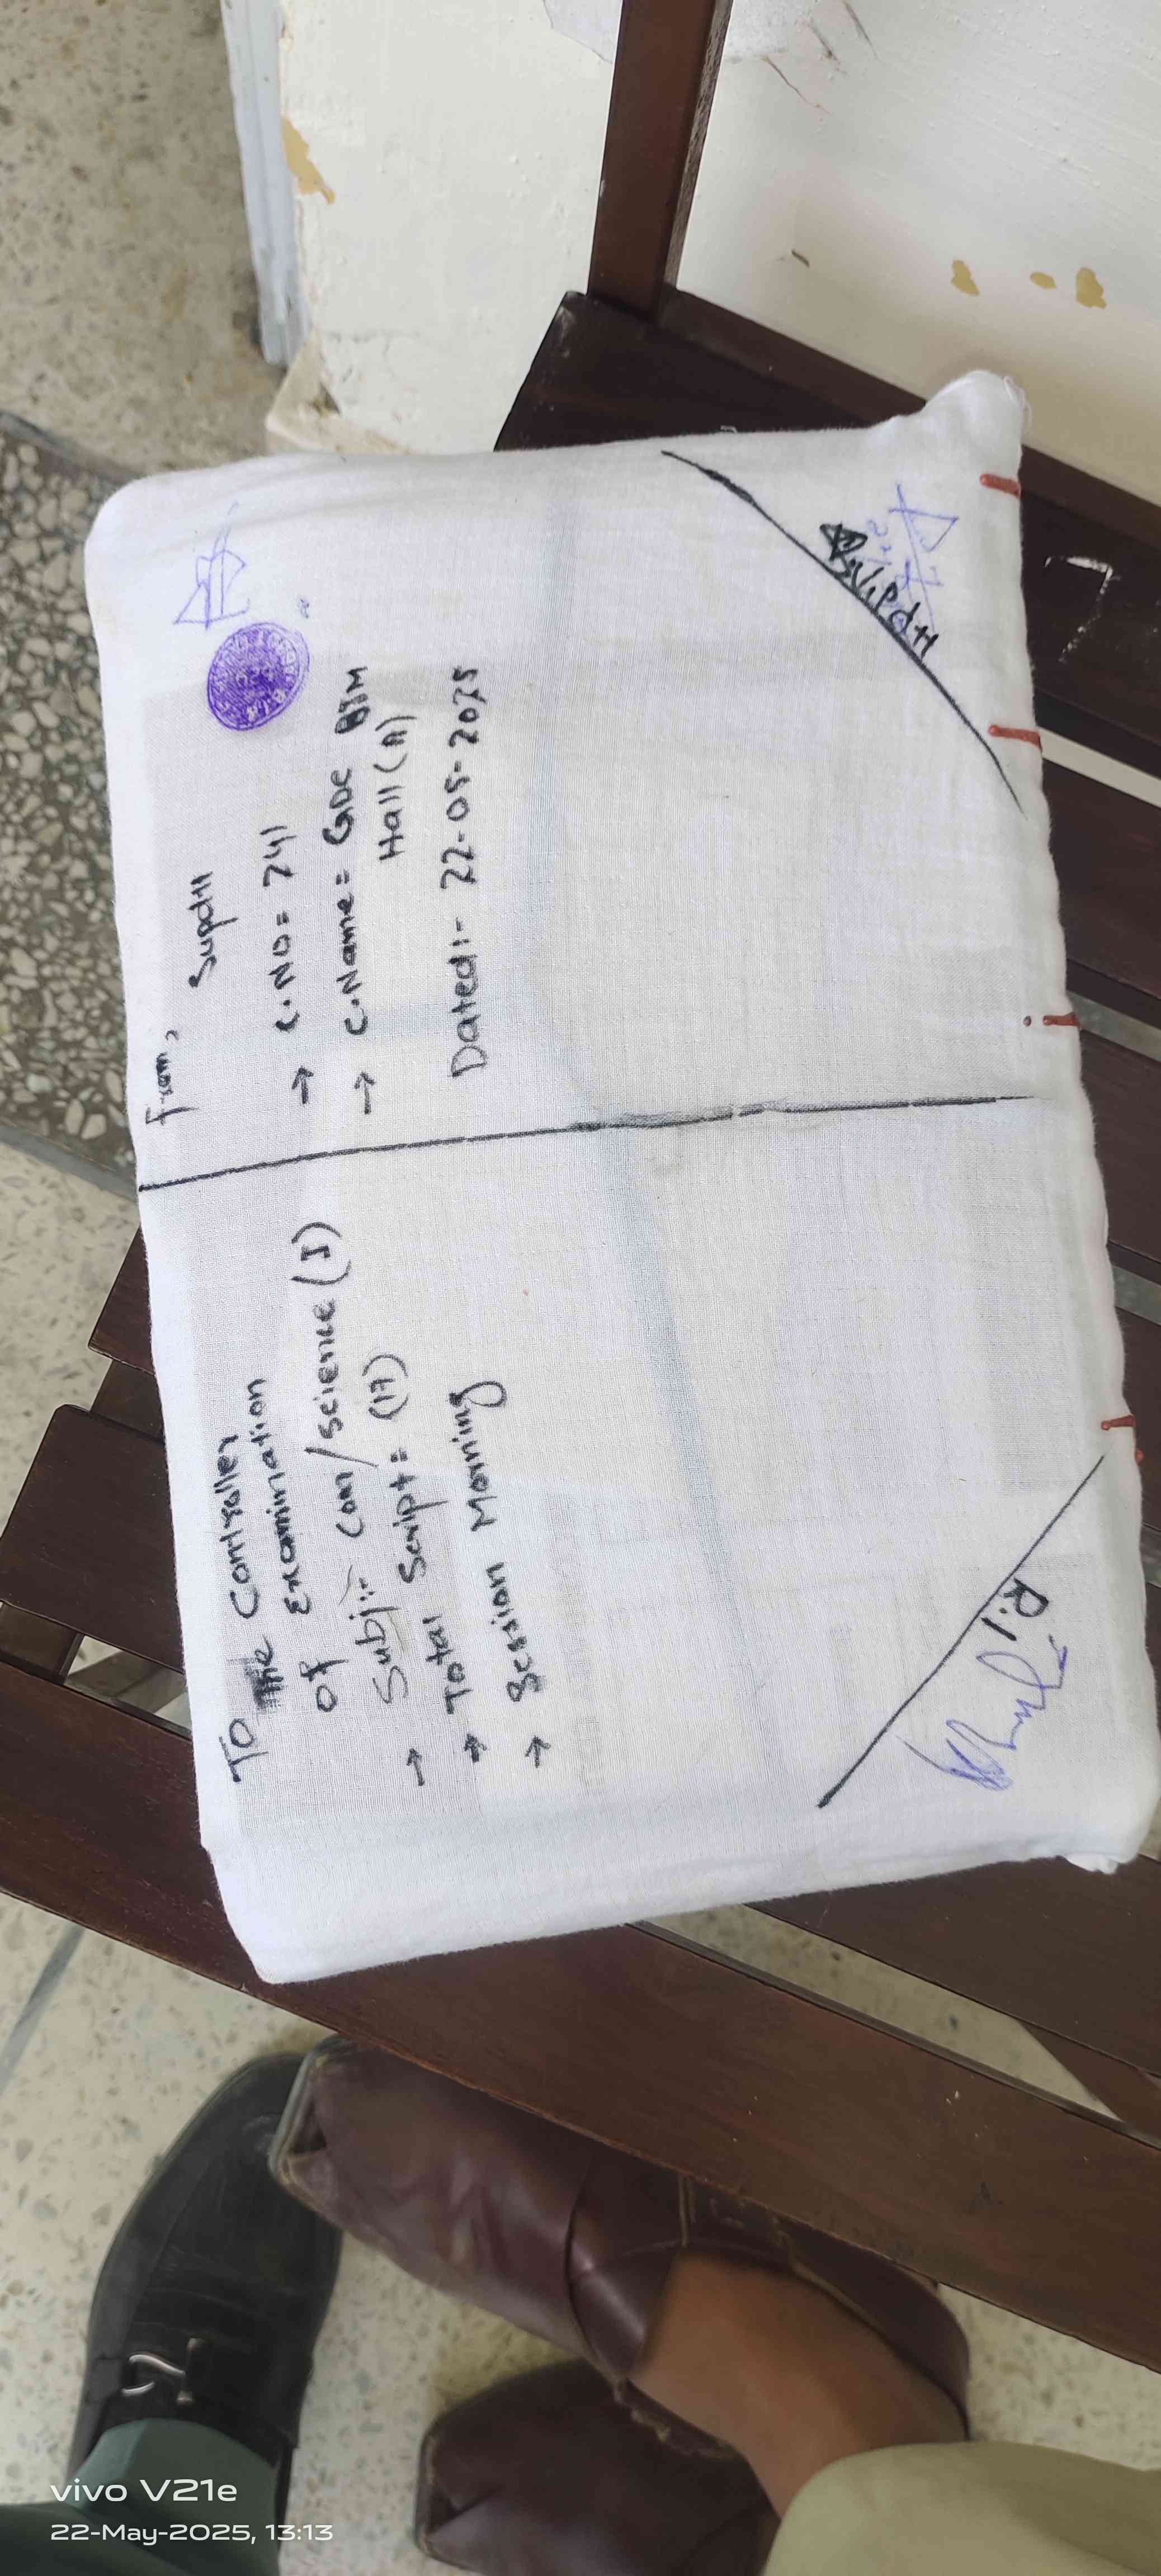 To
The Controller
of Examination
Subj:- Com/science (I)
→ Total Script = (17)
→ Session Morning
From,
Supdtt
→ C.No = 241
→ C.Name = GDC BTM
Hall (A)
Dated:- 22-05-2025
R.I
vivo V21e
22-May-2025, 13:13